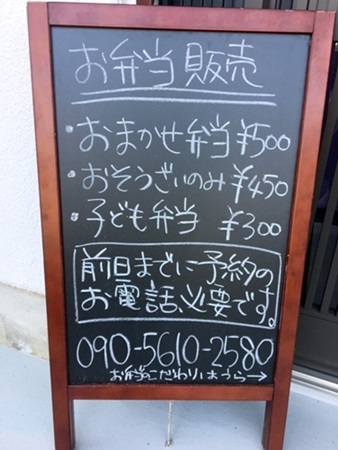 お弁当販売
・おまかせ弁当¥500
・おそうざいのみ¥450
・子ども弁当 ¥300
前日までに予約の
お電話必要です。
090-5610-2580
お弁当こだわりはうら→